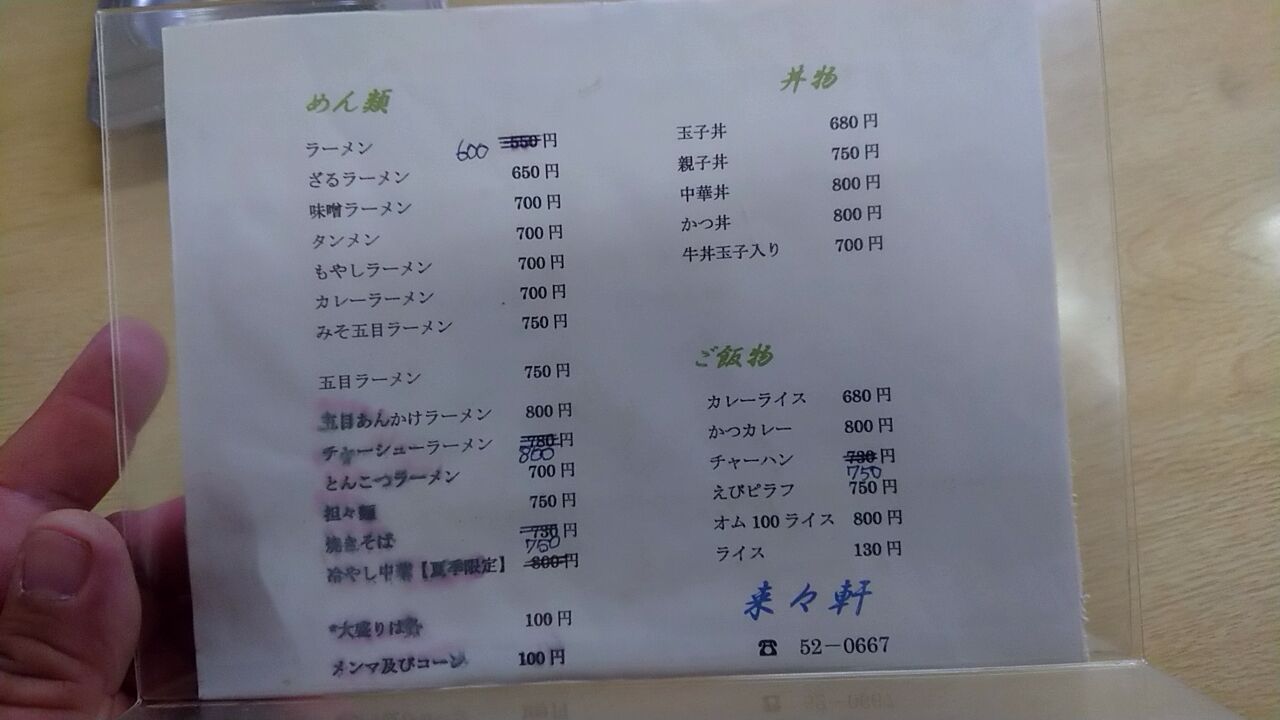 めん類
ラーメン 600 550円
ざるラーメン 650円
味噌ラーメン 700円
タンメン 700円
もやしラーメン 700円
カレーラーメン 700円
みそ五目ラーメン 750円
五目ラーメン 750円
五目あんかけラーメン 800円
チャーシューラーメン 780円
800
とんこつラーメン 700円
担々麺 750円
焼きそば 730円
750
冷やし中華【夏季限定】 800円
*大盛りは 100円
メンマ及びコーン 100円
丼物
玉子丼 680円
親子丼 750円
中華丼 800円
かつ丼 800円
牛丼玉子入り 700円
ご飯物
カレーライス 680円
かつカレー 800円
チャーハン 730円
750
えびピラフ 750円
オム100ライス 800円
ライス 130円
来々軒
☎ 52-0667